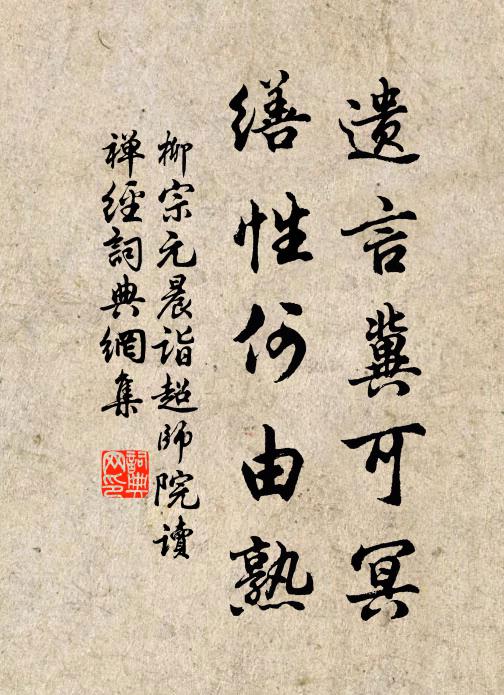 遗言冀可冥
缮性何由熟
柳宗元晨诣超师院读
禅经词典網集
詞典
网印